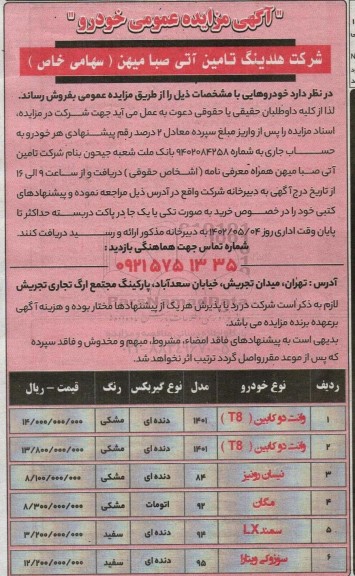 "آگهی مزایده عمومی خودرو"
شرکت هلدینگ تامین آتی صبا میهن ( سهامی خاص )
در نظر دارد خودروهایی با مشخصات ذیل را از طریق مزایده عمومی بفروش رساند.
لذا از کلیه داوطلبان حقیقی یا حقوقی دعوت به عمل می آید جهت شرکت در مزایده،
اسناد مزایده را پس از واریز مبلغ سپرده معادل ۲ درصد رقم پیشنهادی هر خودرو به
حساب جاری به شماره ۹۴۰۲۰۸۴۲۵۸ بانک ملت شعبه جیحون بنام شرکت تامین
آتی صبا میهن همراه معرفی نامه (اشخاص حقوقی) دریافت و از ساعت ۹ الی ۱۶
از تاریخ درج آگهی به دبیرخانه شرکت واقع در آدرس ذیل مراجعه نموده و پیشنهادهای
کتبی خود را در خصوص خرید به صورت تکی یا یک جا در پاکت دربسته حداکثر تا
پایان وقت اداری روز ۱۴۰۲/۰۵/۰۴ به دبیرخانه مذکور ارائه و رسید دریافت کنند.
شماره تماس جهت هماهنگی بازدید:
۰۹۲۱ ۵۷۵ ۱۳ ۳۵
آدرس: تهران، میدان تجریش، خیابان سعدآباد، پارکینگ مجتمع ارگ تجاری تجریش
لازم به ذکر است شرکت در رد یا پذیرش هر یک از پیشنهادها مختار بوده و هزینه آگهی
برعهده برنده مزایده می باشد.
بدیهی است به پیشنهادهای فاقد امضاء، مشروط، مبهم و مخدوش و فاقد سپرده
که پس از موعد مقرر واصل گردد ترتیب اثر نخواهد شد.
ردیف نوع خودرو مدل نوع گیربکس رنگ قیمت - ریال
۱ وانت دو کابین ( T8 ) ۱۴۰۱ دنده ای مشکی ۱۴/۰۰۰/۰۰۰/۰۰۰
۲ وانت دو کابین ( T8 ) ۱۴۰۱ دنده ای مشکی ۱۳/۸۰۰/۰۰۰/۰۰۰
۳ نیسان رونیز ۸۴ دنده ای مشکی ۸/۱۰۰/۰۰۰/۰۰۰
۴ مگان ۹۲ اتومات مشکی ۸/۳۰۰/۰۰۰/۰۰۰
۵ سمند LX ۹۴ دنده ای سفید ۳/۲۰۰/۰۰۰/۰۰۰
۶ سوزوکی ویتارا ۹۵ دنده ای سفید ۱۲/۲۰۰/۰۰۰/۰۰۰